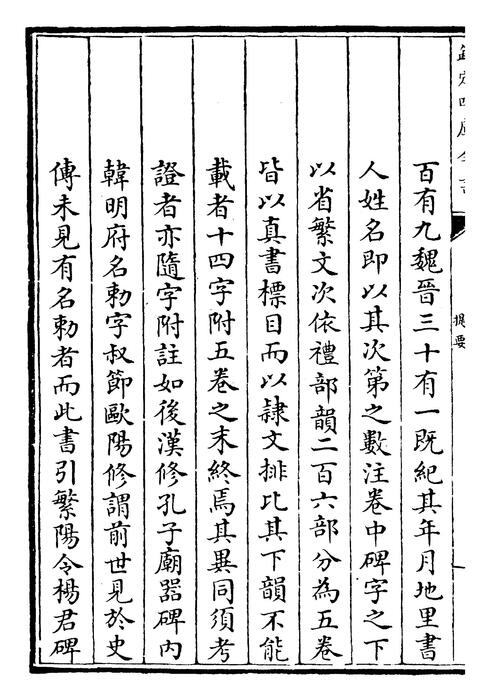 欽定四庫全書
提要
百有九魏晉三十有一既紀其年月地里書
人姓名即以其次第之數注卷中碑字之下
以省繁文次依禮部韻二百六部分為五卷
皆以真書標目而以隷文排比其下韻不能
載者十四字附五卷之末終焉其異同須考
證者亦隨字附註如後漢修孔子廟器碑内
韓明府名勅字叔節歐陽修謂前世見於史
傳未見有名勅者而此書引繁陽令楊君碑